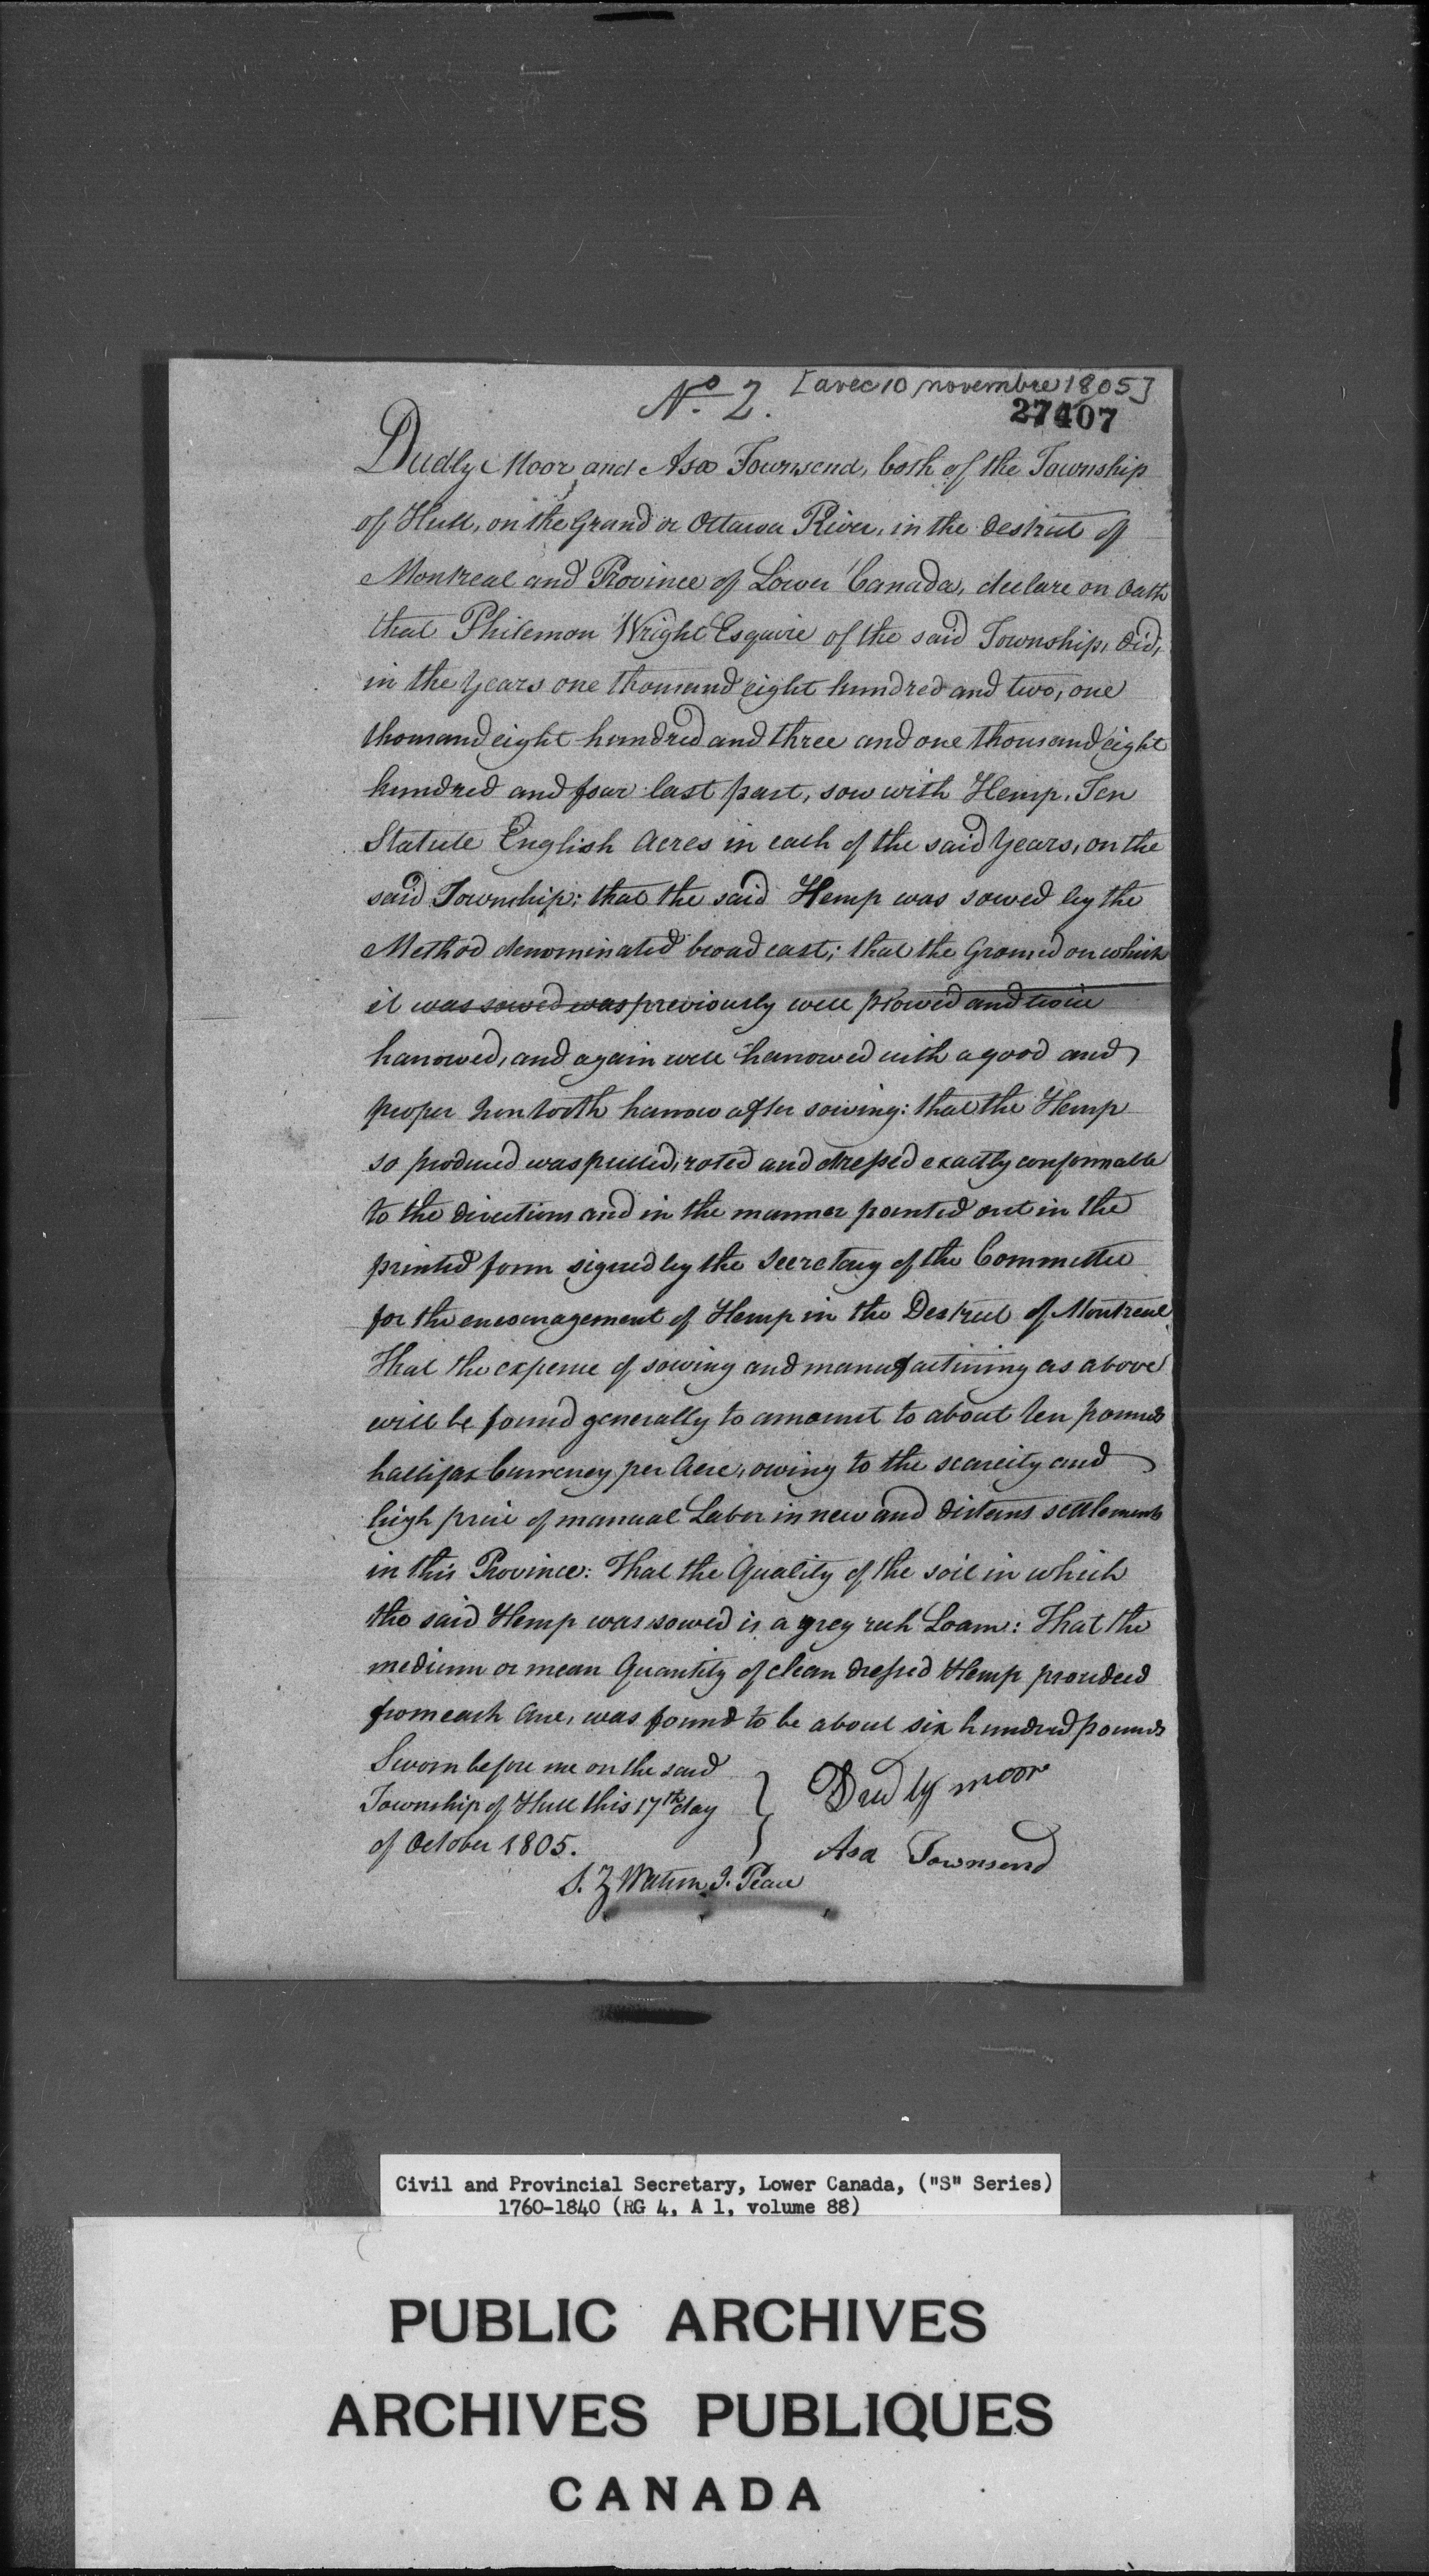 No. 2. [avec 10 novembre 1805]
27407
Dudly Moor, and Asa Townsend, both of the Township
of Hull, on the Grand or Ottawa River, in the Destrict of
Montreal and Province of Lower Canada, declare on Oath
that Philemon Wright Esquire of the said Township, did,
in the Years one thousand eight hundred and two, one
thousand eight hundred and three and one thousand eight
hundred and four last past, sow with Hemp, Ten
Statute English Acres in each of the said Years, on the
said Township; that the said Hemp was sowed by the
Method denominated broad cast; that the Ground on which
it was sowed was previously well plowed and twice
harrowed, and again well harrowed with a good and
proper Iron tooth harrow after sowing: that the Hemp
so produced was pulled, roted and dressed exactly conformable
to the directions and in the manner pointed out in the
printed form signed by the Secretary of the Committee
for the encouragement of Hemp in the Destrict of Montreal
That the expense of sowing and manufacturing as above
will be found generally to amount to about ten pounds
hallifax Currency per Acre, owing to the scarcity and
high price of manual Labor in new and distant settlements
in this Province: That the Quality of the soil in which
the said Hemp was sowed is a grey rich Loam: That the
medium or mean Quantity of clean dressed Hemp produced
from each Acre, was found to be about six hundred pounds
Sworn before me on the said
Township of Hull this 17th day
of October 1805.
Dudly moor
Asa Townsend
J. Peace
Civil and Provincial Secretary, Lower Canada, ("S" Series)
1760-1840 (RG 4, A 1, volume 88)
PUBLIC ARCHIVES
ARCHIVES PUBLIQUES
CANADA